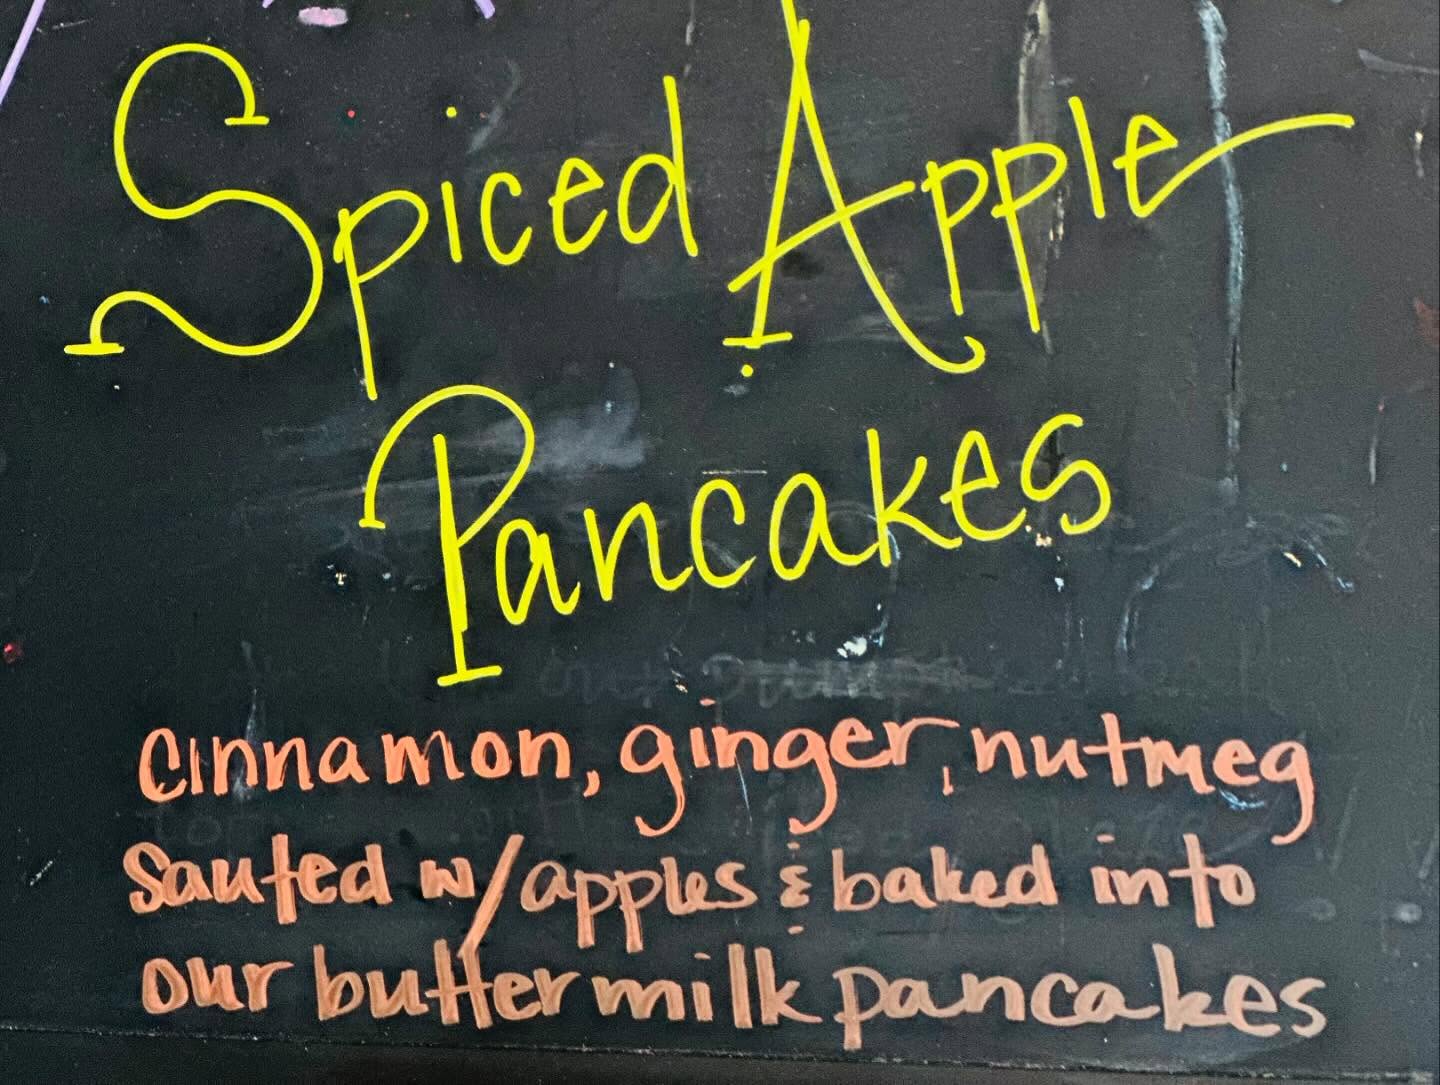 Spiced Apple
Pancakes
cinnamon, ginger, nutmeg
sauted w/apples & baked into
our buttermilk pancakes